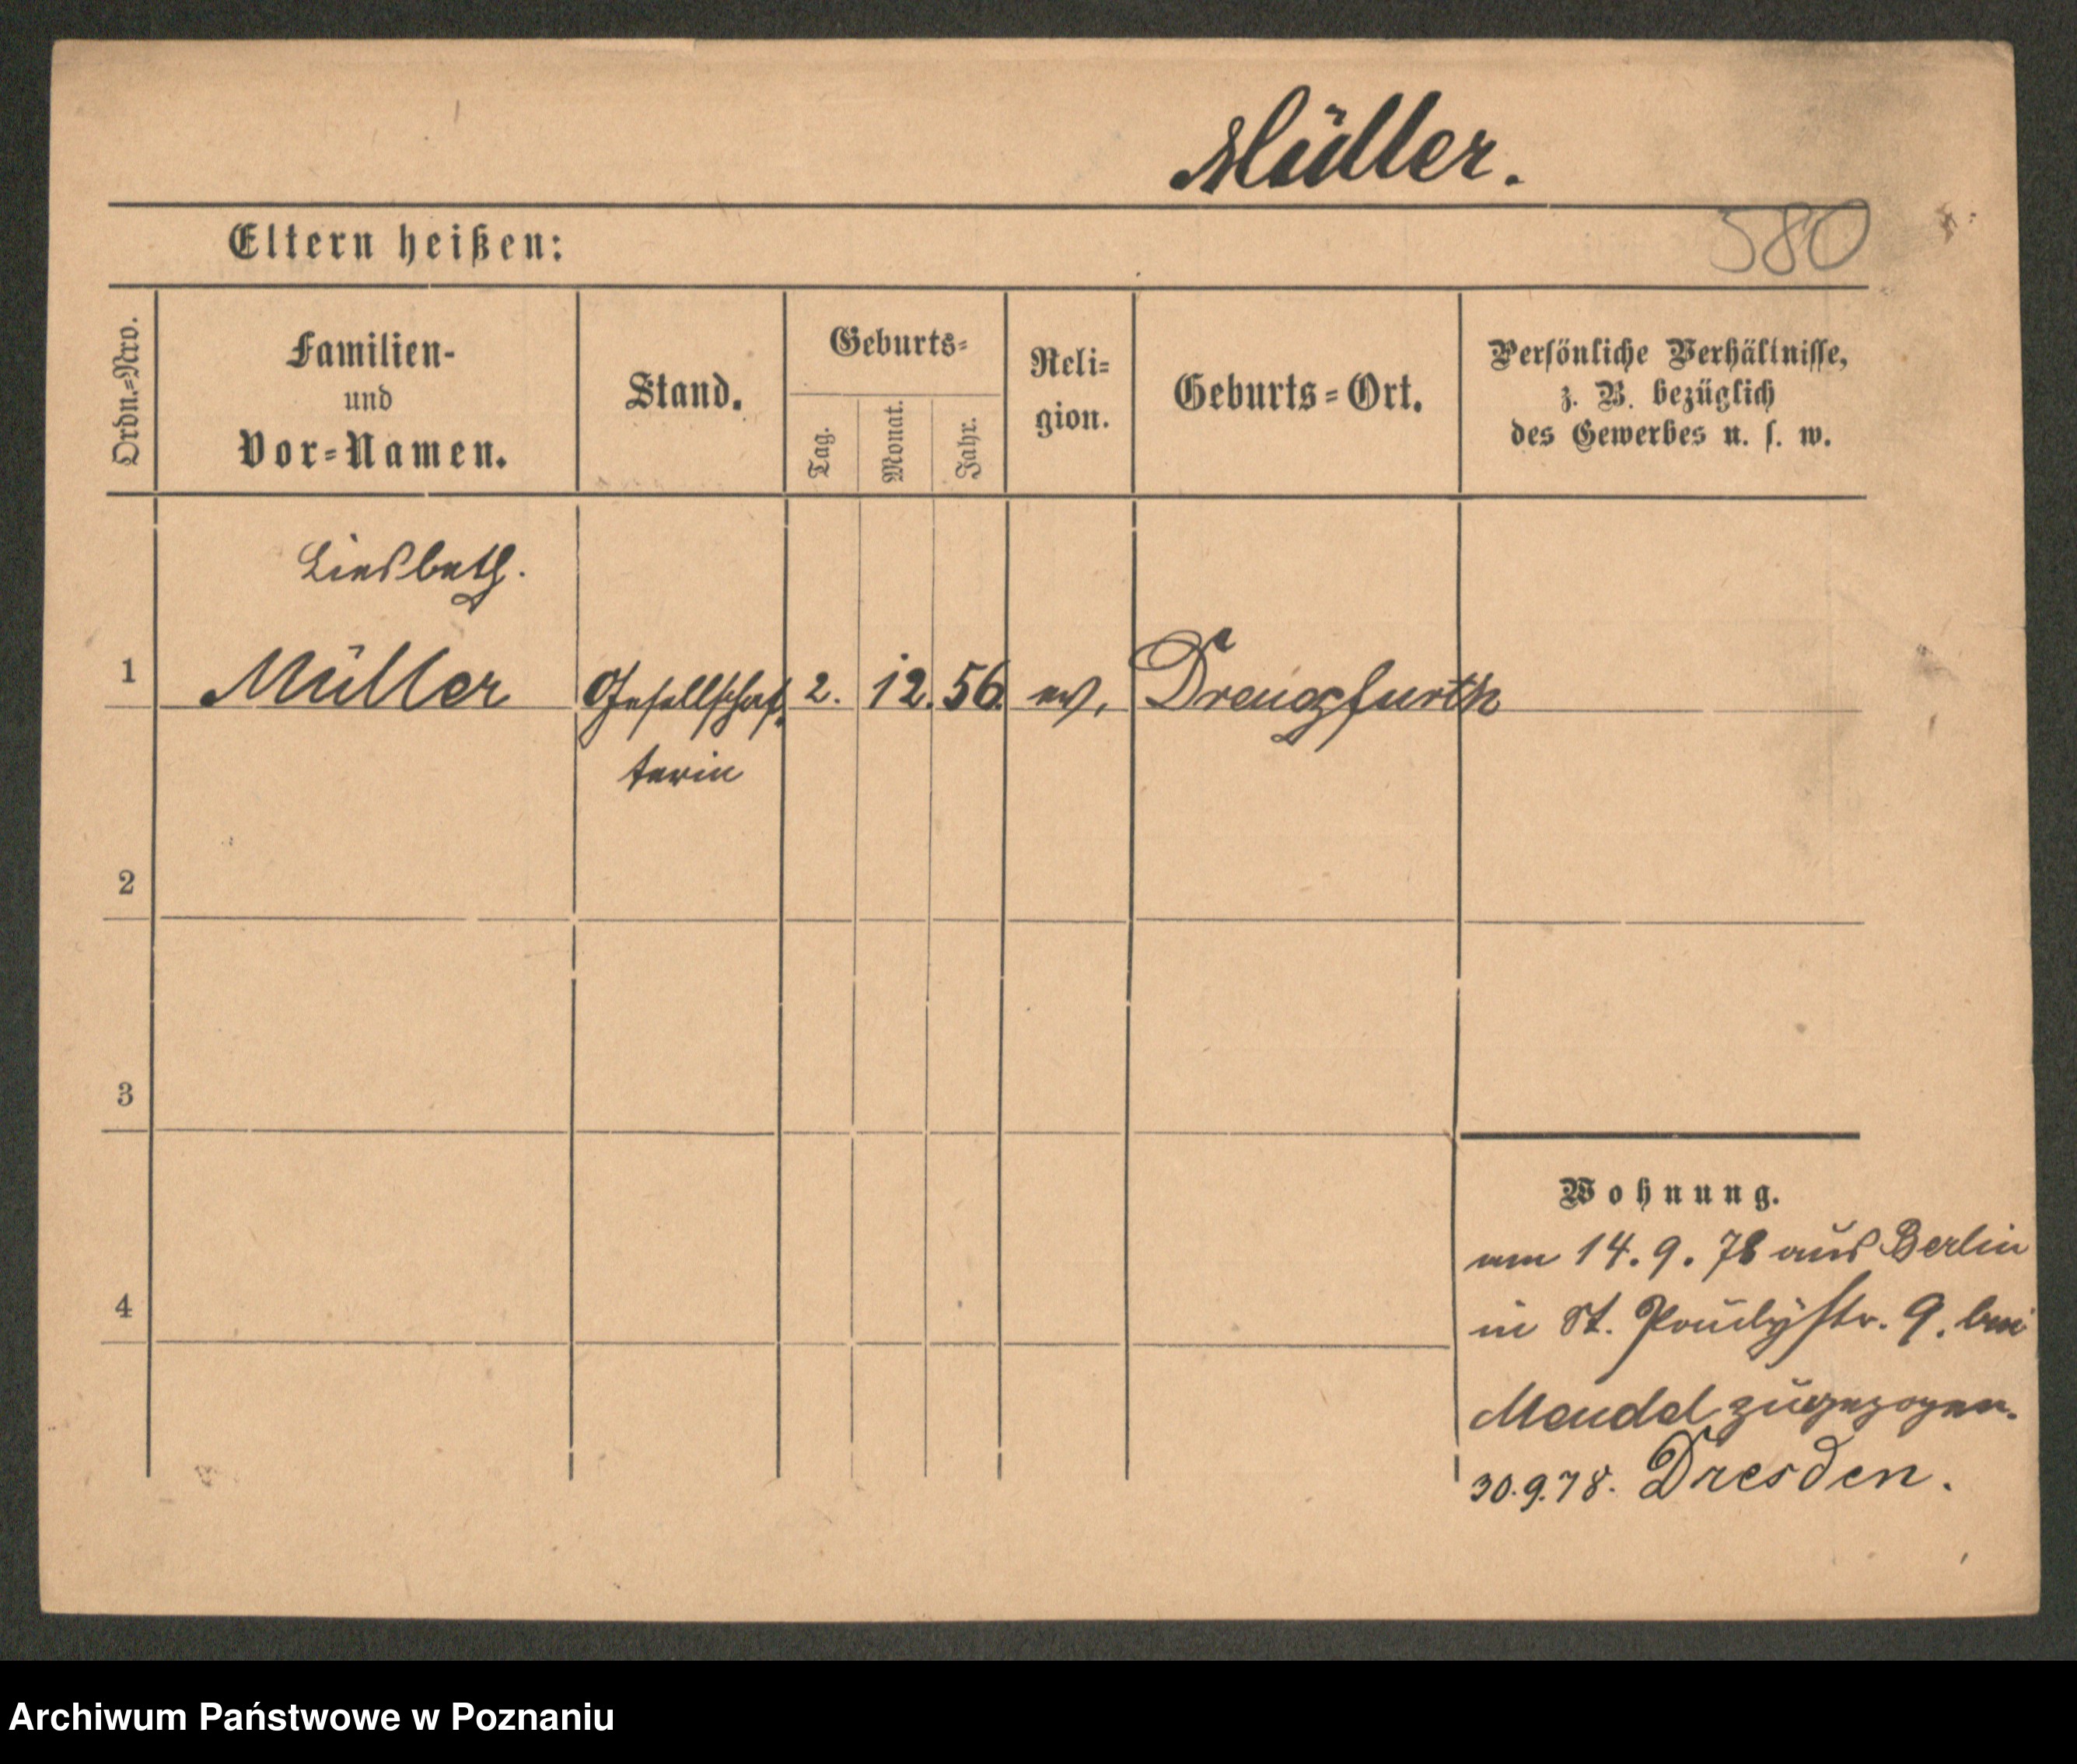 Müller.
580
Eltern heißen:
Ordn.=Nro.
Familien-
und
Vor=Namen.
Stand.
Geburts=
Tag.
Monat.
Jahr.
Reli=
gion.
Geburts=Ort.
Persönliche Verhältnisse,
z. B. bezüglich
des Gewerbes u. s. w.
Liesbeth.
1 Müller Gesellschaf 2. 12. 56. ev. Drengfurth
terin
2
3
4
Wohnung.
am 14. 9. 78 aus Berlin
in St. str. 9. bei
Mendel zugezogen.
30.9.78. Dresden.
Archiwum Państwowe w Poznaniu